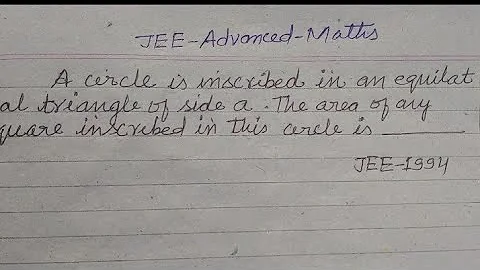 JEE-Advanced-Maths
A circle is inscribed in an equilat
al triangle of side a. The area of any
quare inscribed in this circle is ______
JEE-1994